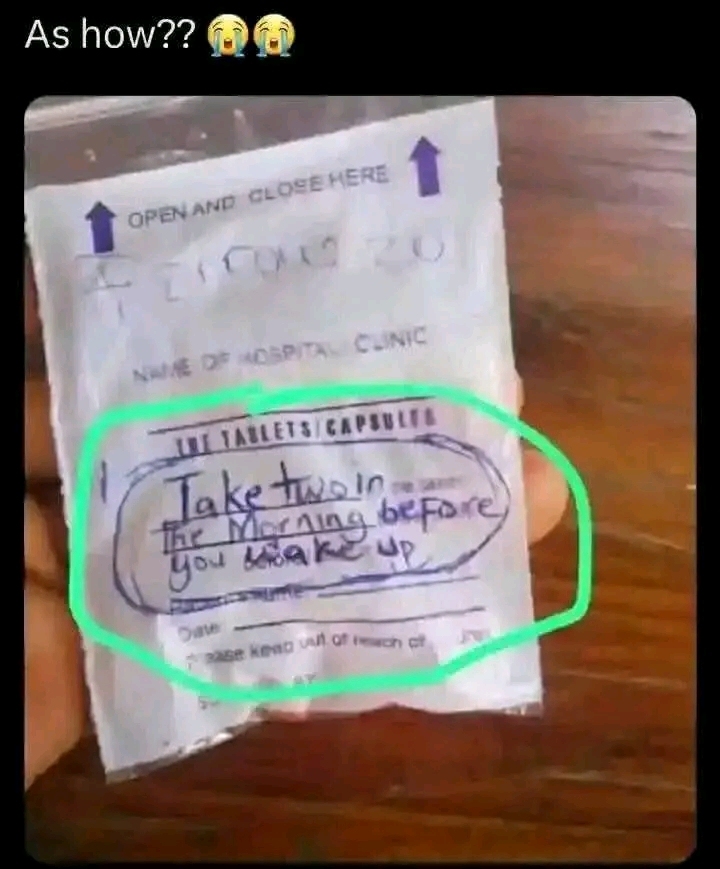 As how?? 😭😭
OPEN AND CLOSE HERE
20
NAME OF HOSPITAL CLINIC
THE TABLETS/CAPSULES
Take two in
The Morning before
you wake up
Date
Please keep out of reach of